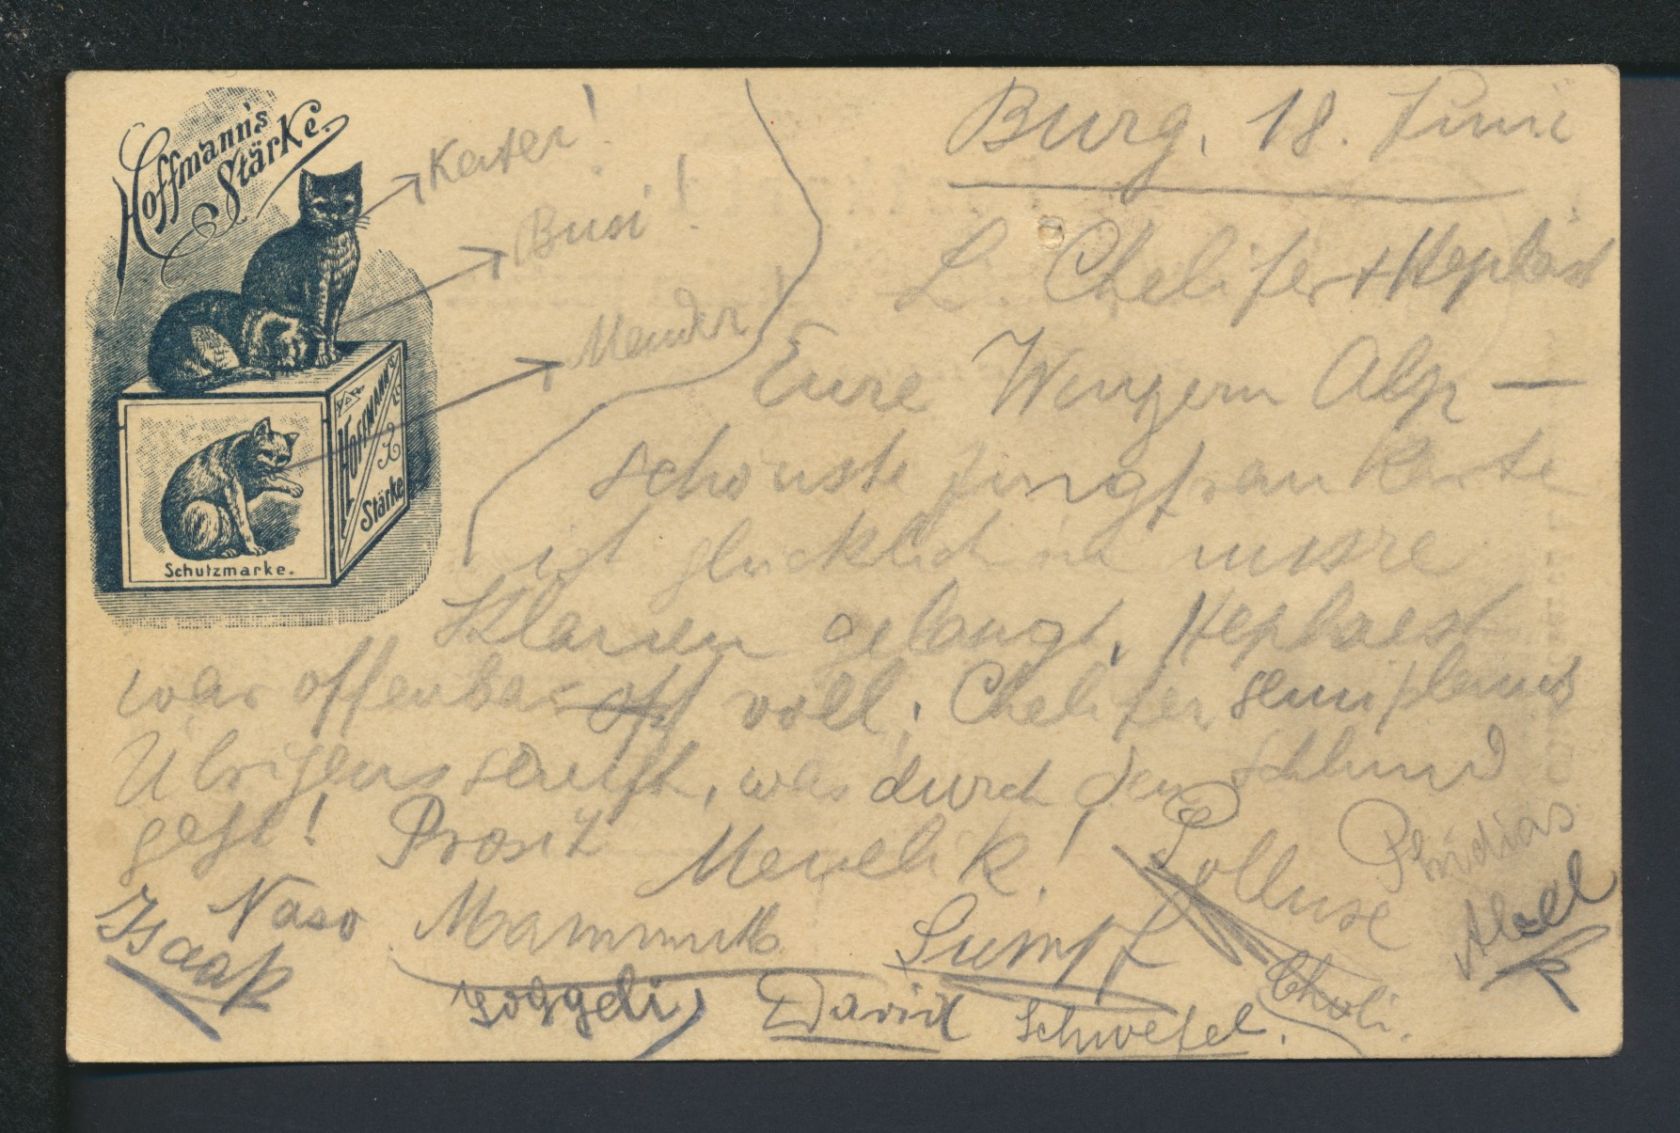 Hoffmann's
Stärke.
Kater!
Busi!
HOFFMANN'S
Stärke
Schutzmarke.
Burg, 18. Juni
L. Chelifer + Hephäst
Eure Wengern Alp —
schönste Jungfraukarte
ist glücklich in unsre
Klauen gelangt. Hephaest
war offenbar oft voll, Chelifer semiplenus
Übrigens seufzt, was durch den Schlund
geht! Prosit Menelik! Polluxe Phidias
Isaak Naso Mammuth Sumpf Abell
Joggeli, David Schwefel.